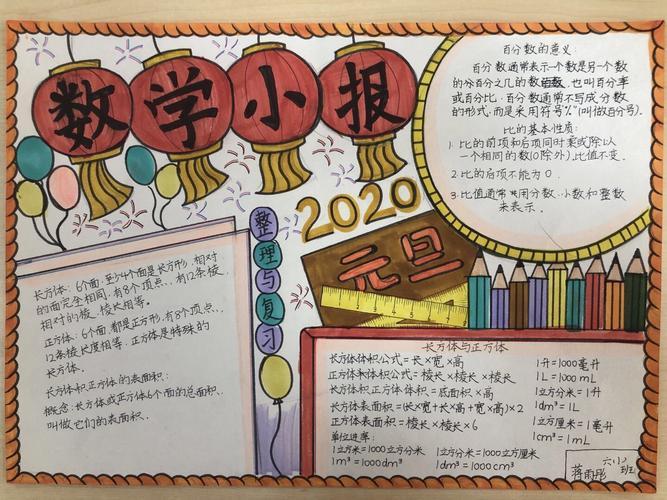 数学小报
2020
元旦
整理与复习
百分数的意义:
百分数通常表示一个数是另一个数
的百分之几的数, 也叫百分率
或百分比. 百分数通常不写成分数
的形式, 而是采用符号“%”(叫做百分号).
比的基本性质:
1. 比的前项和后项同时乘或除以
一个相同的数(0除外), 比值不变.
2. 比的后项不能为0.
3. 比值通常用分数、小数和整数
来表示.
长方体: 6个面, 至少4个面是长方形, 相对
的面完全相同, 有8个顶点, 有12条棱,
相对的棱, 棱长相等.
正方体: 6个面, 都是正方形, 有8个顶点,
12条棱长度相等, 正方体是特殊的
长方体.
长方体和正方体的表面积:
概念: 长方体或正方体6个面的总面积,
叫做它们的表面积.
长方体与正方体
长方体体积公式=长×宽×高
正方体体积公式=棱长×棱长×棱长
长方体积正方体体积=底面积×高
长方体表面积=(长×宽+长×高+宽×高)×2
正方体表面积=棱长×棱长×6
单位进率:
1立方米=1000立方分米
1m³=1000dm³
1立方分米=1000立方厘米
1dm³=1000cm³
1升=1000毫升
1L=1000mL
1立方分米=1升
1dm³=1L
1立方厘米=1毫升
1cm³=1mL
班
蒋雨彤